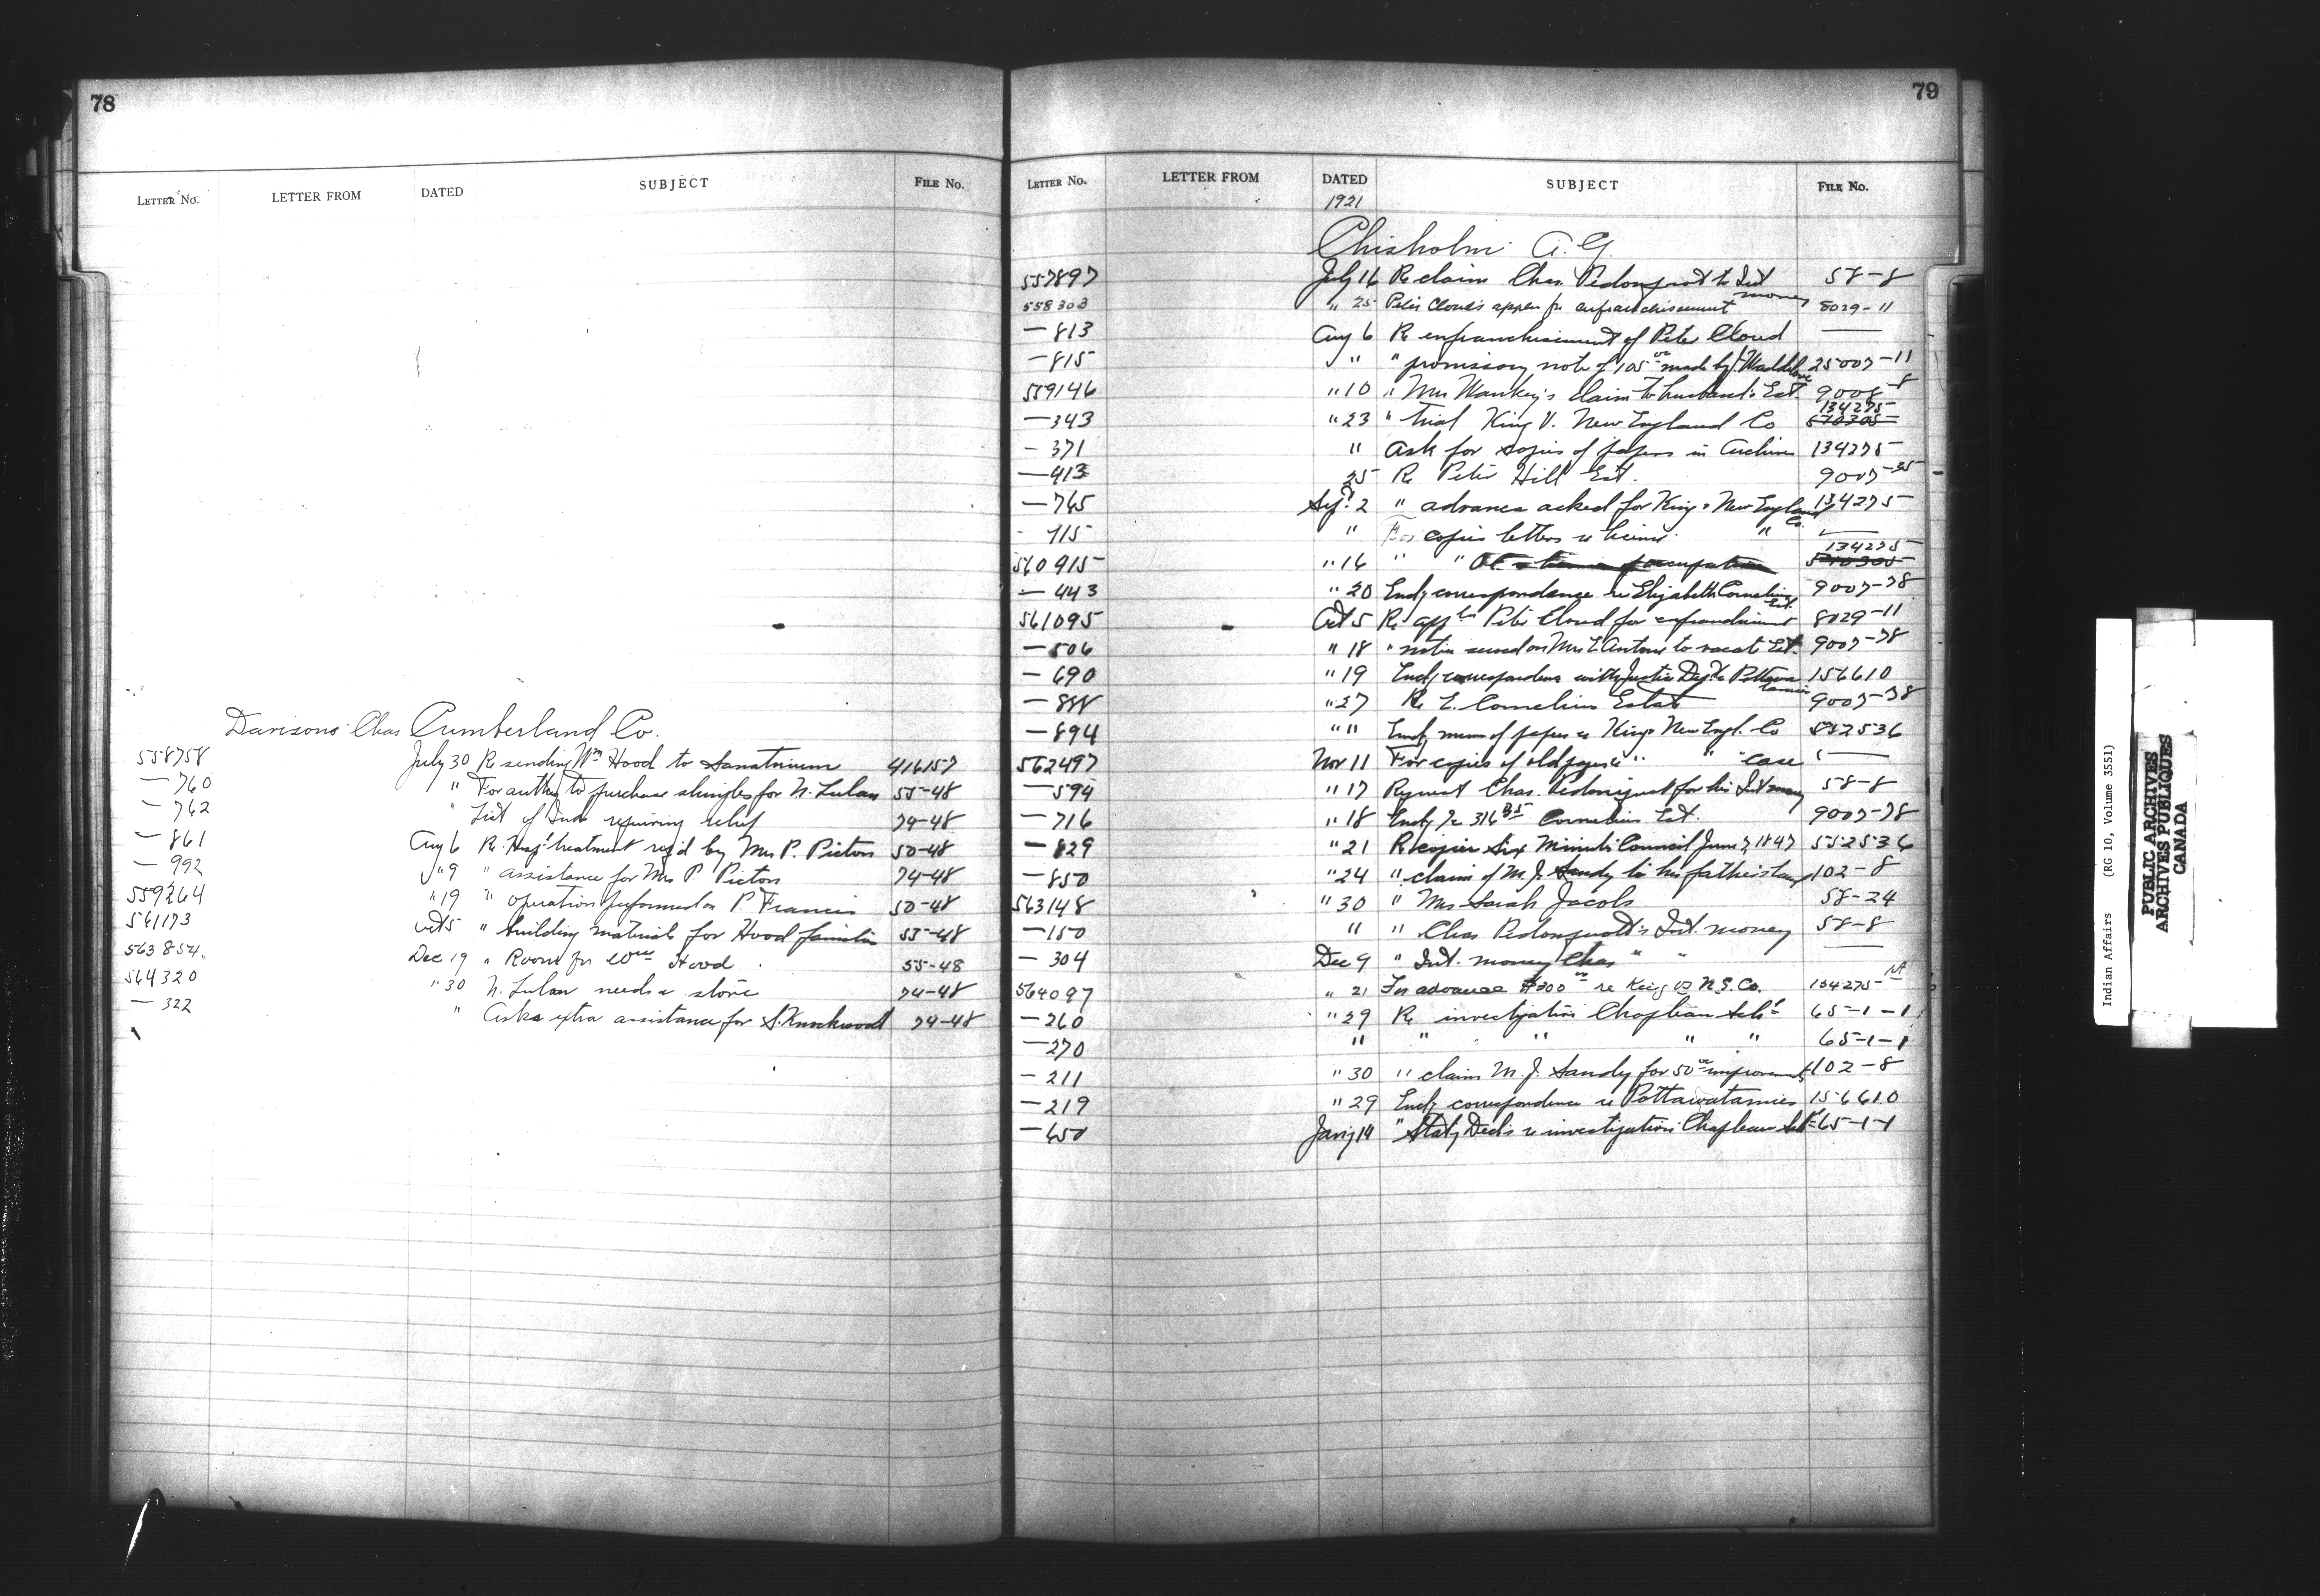 78
LETTER No. LETTER FROM DATED SUBJECT FILE No.
Davisons Chas Cumberland Co.
558758 July 30 Re sending Wm Hood to Sanatrium 416157
— 760 " For authy to purchase shingles for N. Lulan 55-48
— 762 " List of Inds requiring relief 74-48
— 861 Aug 6 Re Hospl treatment reqd by Mrs P. Picton 50-48
— 992 " 9 " assistance for Mrs P Picton 74-48
559264 " 19 " operation performed on P. Francis 50-48
561173 Oct 5 " building materials for Hood families 55-48
563854 Dec 19 " Room for Hood 55-48
564320 " 30 N. Lulan needs a stove 74-48
— 322 " Asks extra assistance for S. Knockwood 74-48
79
LETTER No. LETTER FROM DATED SUBJECT FILE No.
1921
Chisholm A. G.
557897 July 16 Re claim Chas. Pedonquot to Int money 58-8
558303 " 25 Peter Cloud's appln for enfranchisement 8029-11
— 813 Aug 6 Re enfranchisement of Peter Cloud ——
— 815 " " promissory note of 105 00 made by J. Waddilove 25007-11
559146 " 10 " Mrs claim to husband's Est. 9008-8
— 343 " 23 " trial King V. New England Co 134275
— 371 " Ask for copies of papers in Archives 134275
— 413 25 Re Peter Hill Est. 9007-25
— 765 Sept. 2 " advance asked for King v New England Co. 134275
- 715 " For copies letters re " ——
560915 " 16 " " 134275
— 443 " 20 Encly correspondence re Elizabeth Cornelius Est. 9007-78
561095 Oct 5 Re appln Peter Cloud for enfranchisement 8029-11
— 506 " 18 " notice served on Mrs E Antone to vacate Est. 9007-78
— 690 " 19 Encly correspondence with Justice Dept re Pottawatamies 156610
— 888 " 27 Re E. Cornelius Estate 9007-78
— 894 " " Encly memo of papers re King v New Engl. Co 552536
562497 Nov 11 For copies of old papers " " " case ——
— 594 " 17 Request Chas. Pedonquot for his Int money 58-8
— 716 " 18 Encly 316 35 Cornelius Est. 9007-78
— 829 " 21 Re copies Six Minute Council June 7, 1847 552536
— 850 " 24 " claim of M. J. Sandy to his father's land 102-8
563148 " 30 " Mrs Sarah Jacobs 58-24
— 150 " " Chas Pedonquott's Int. money 58-8
— 304 Dec 9 " Int. money Chas " " ——
564097 " 21 For advance $300 00 re King vs N. E. Co. 134275
— 260 " 29 Re investigation Chapleau Schl 65-1-1
— 270 " " " " " 65-1-1
— 211 " 30 " claim M. J. Sandy for 50 00 improvements 102-8
— 219 " 29 Encly correspondence re Pottawatamies 156610
— 650 Jany 14 " Staty Decls re investigation Chapleau Schl 65-1-1
Indian Affairs (RG 10, Volume 3551)
PUBLIC ARCHIVES
ARCHIVES PUBLIQUES
CANADA